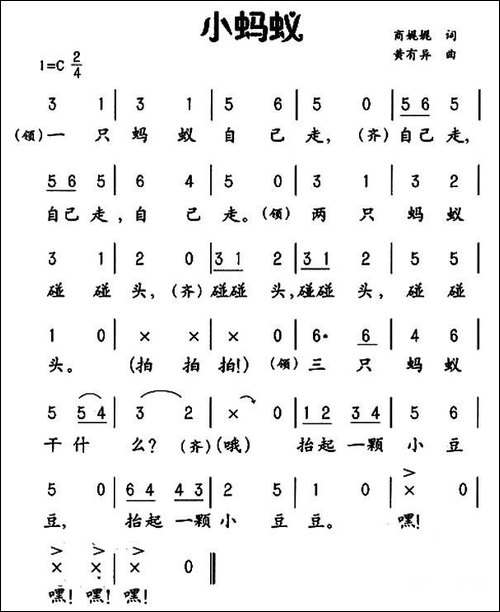 小蚂蚁
商娓娓 词
1=C 2/4
黄有异 曲
3 1 | 3 1 | 5 6 | 5 0 | 5 6 5 |
(领)一 只 蚂 蚁 自 己 走, (齐)自己走,
5 6 5 | 6 4 | 5 0 | 3 1 | 3 2 |
自己走,自 己 走。(领)两 只 蚂 蚁
3 1 | 2 0 | 3 1 2 | 3 1 2 | 5 5 |
碰 碰 头, (齐)碰碰 头,碰碰 头, 碰 碰
1 0 | × × | × 0 | 6· 6 | 4 6 |
头。 (拍 拍 拍!) (领)三 只 蚂 蚁
5 5 4 | 3 2 | × 0 | 1 2 3 4 | 5 6 |
干 什 么? (齐)(哦) 抬起 一颗 小 豆
5 0 | 6 4 4 3 | 2 5 | 1 0 | × 0 |
豆, 抬起 一颗 小 豆 豆。 嘿!
× × | × 0 ‖
嘿! 嘿! 嘿!